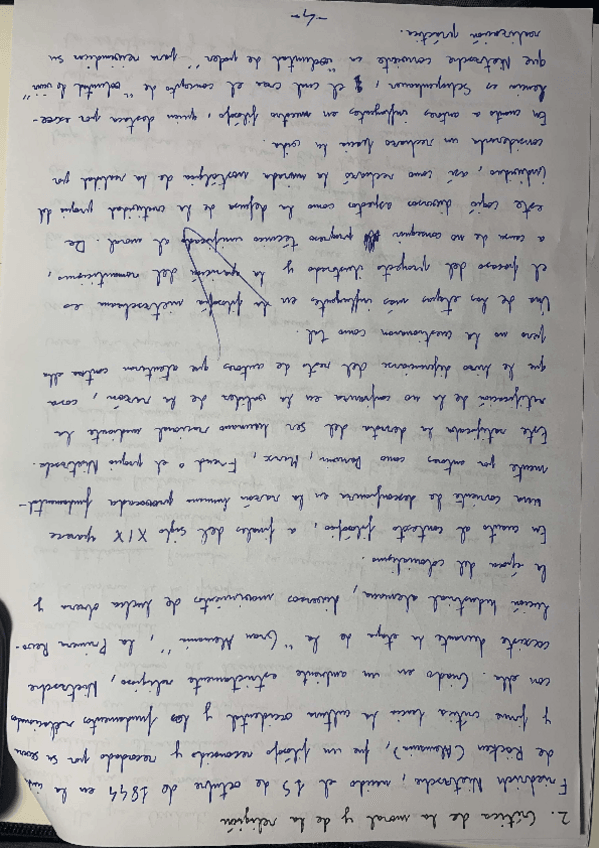 2. Crítica de la moral y de la religión
Friedrich Nietzsche, nacido el 15 de octubre de 1844 en la
de Röcken (Alemania), fue un filósofo reconocido y recordado por su
y firme crítica hacia la cultura occidental y los fundamentos relacionados
con ella. Criado en un ambiente estrictamente religioso, Nietzsche
coexiste durante la etapa de la "Gran Alemania", la Primera Revo-
lución Industrial alemana, diversos movimientos de lucha obrera y
la época del colonialismo.
En cuanto al contexto filosófico, a finales del siglo XIX aparece
una corriente de desconfianza en la razón humana provocada fundamental-
mente por autores como Darwin, Marx, Freud o el propio Nietzsche.
Este ratificaba la derrota del ser humano racional mediante la
ratificación de la no confianza en la validez de la razón, cosa
que le hizo diferenciarse del resto de autores que atentaron contra ella
pero no la cuestionaron como tal.
Una de las etapas más influyente en la filosofía nietzscheana es
el fracaso del proyecto ilustrado y la aparición del romanticismo,
a causa de no conseguir progreso técnico unificado al moral. De
este cogió diversos aspectos como la defensa de la creatividad propia del
individuo, así como rechazó la mirada nostálgica de la realidad por
considerarla un rechazo hacia la vida.
En cuanto a autores influyentes en nuestro filósofo, quien destaca por exce-
lencia es Schopenhauer, el cual crea el concepto de "voluntad de vivir"
que Nietzsche convierte en "voluntad de poder" para reivindicar su
realización práctica.
-4-